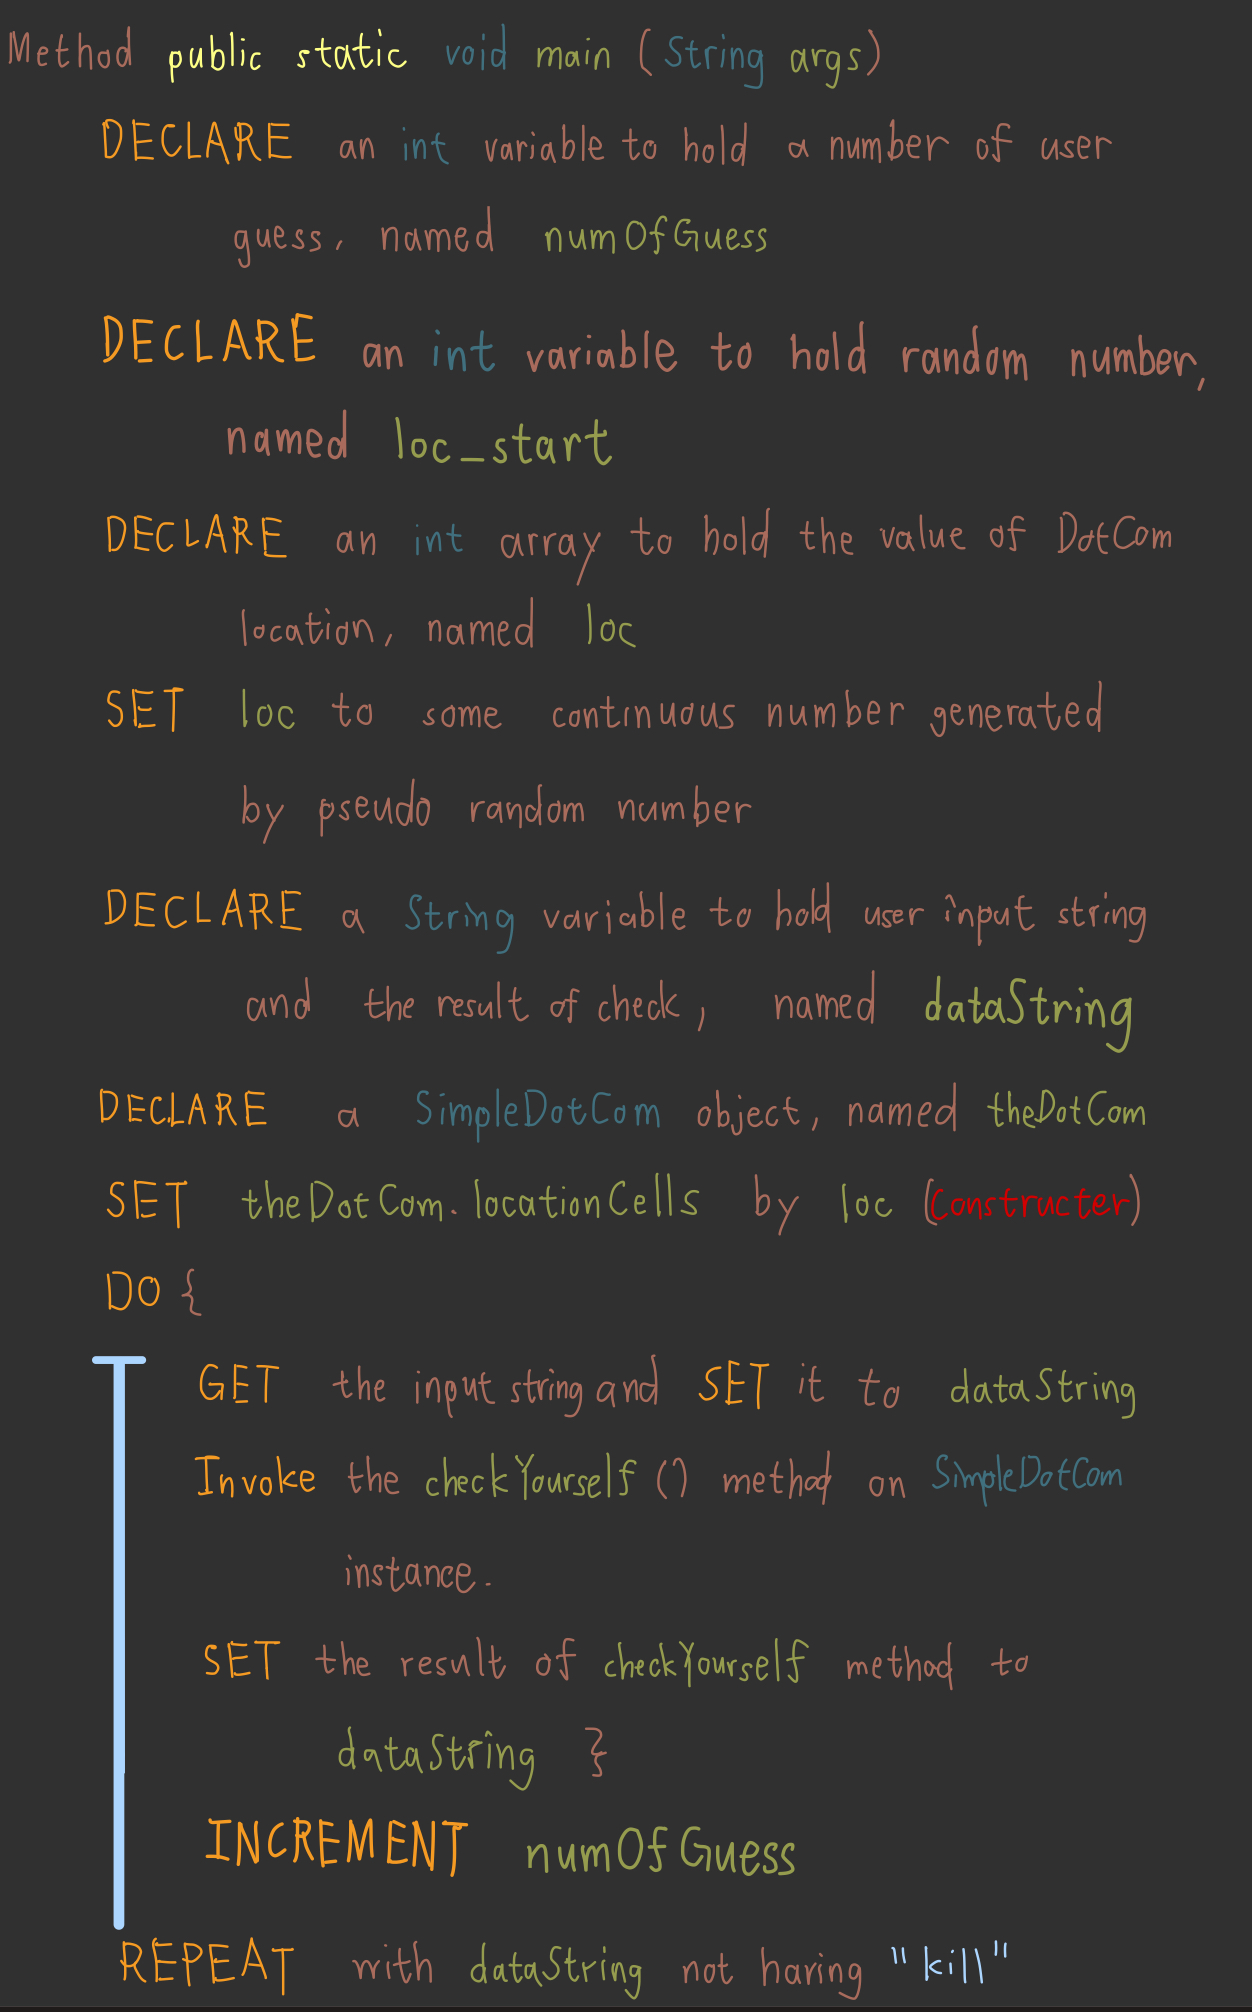 Method public static void main (String args)
DECLARE an int variable to hold a number of user
guess, named numOfGuess
DECLARE an int variable to hold random number,
named loc_start
DECLARE an int array to hold the value of DotCom
location, named loc
SET loc to some continuous number generated
by pseudo random number
DECLARE a String variable to hold user input string
and the result of check, named dataString
DECLARE a SimpleDotCom object, named theDotCom
SET theDotCom.locationCells by loc (Constructer)
DO {
GET the input string and SET it to dataString
Invoke the checkYourself () method on SimpleDotCom
instance.
SET the result of checkYourself method to
dataString }
INCREMENT numOfGuess
REPEAT with dataString not having "kill"